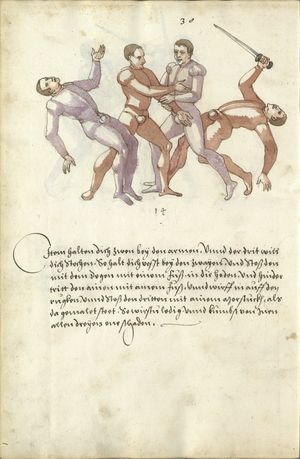 30
14
Item halten dich zwen bey den armen. Vnnd der drit will
dich stechen. So halt dich vest bey den zwayen. Vnd stoß den
mit dem degen mit ainem fuß in die hoden. Vnd hinder
tritt den ainen mit ainem fuß. Vnd wirff in auff den
rugken. Vnnd stoß den dritten mit ainem morstich, als
da gemalet steet. So wirstu ledig. Vnnd kumbst von jnen
allen dreyen one schaden.